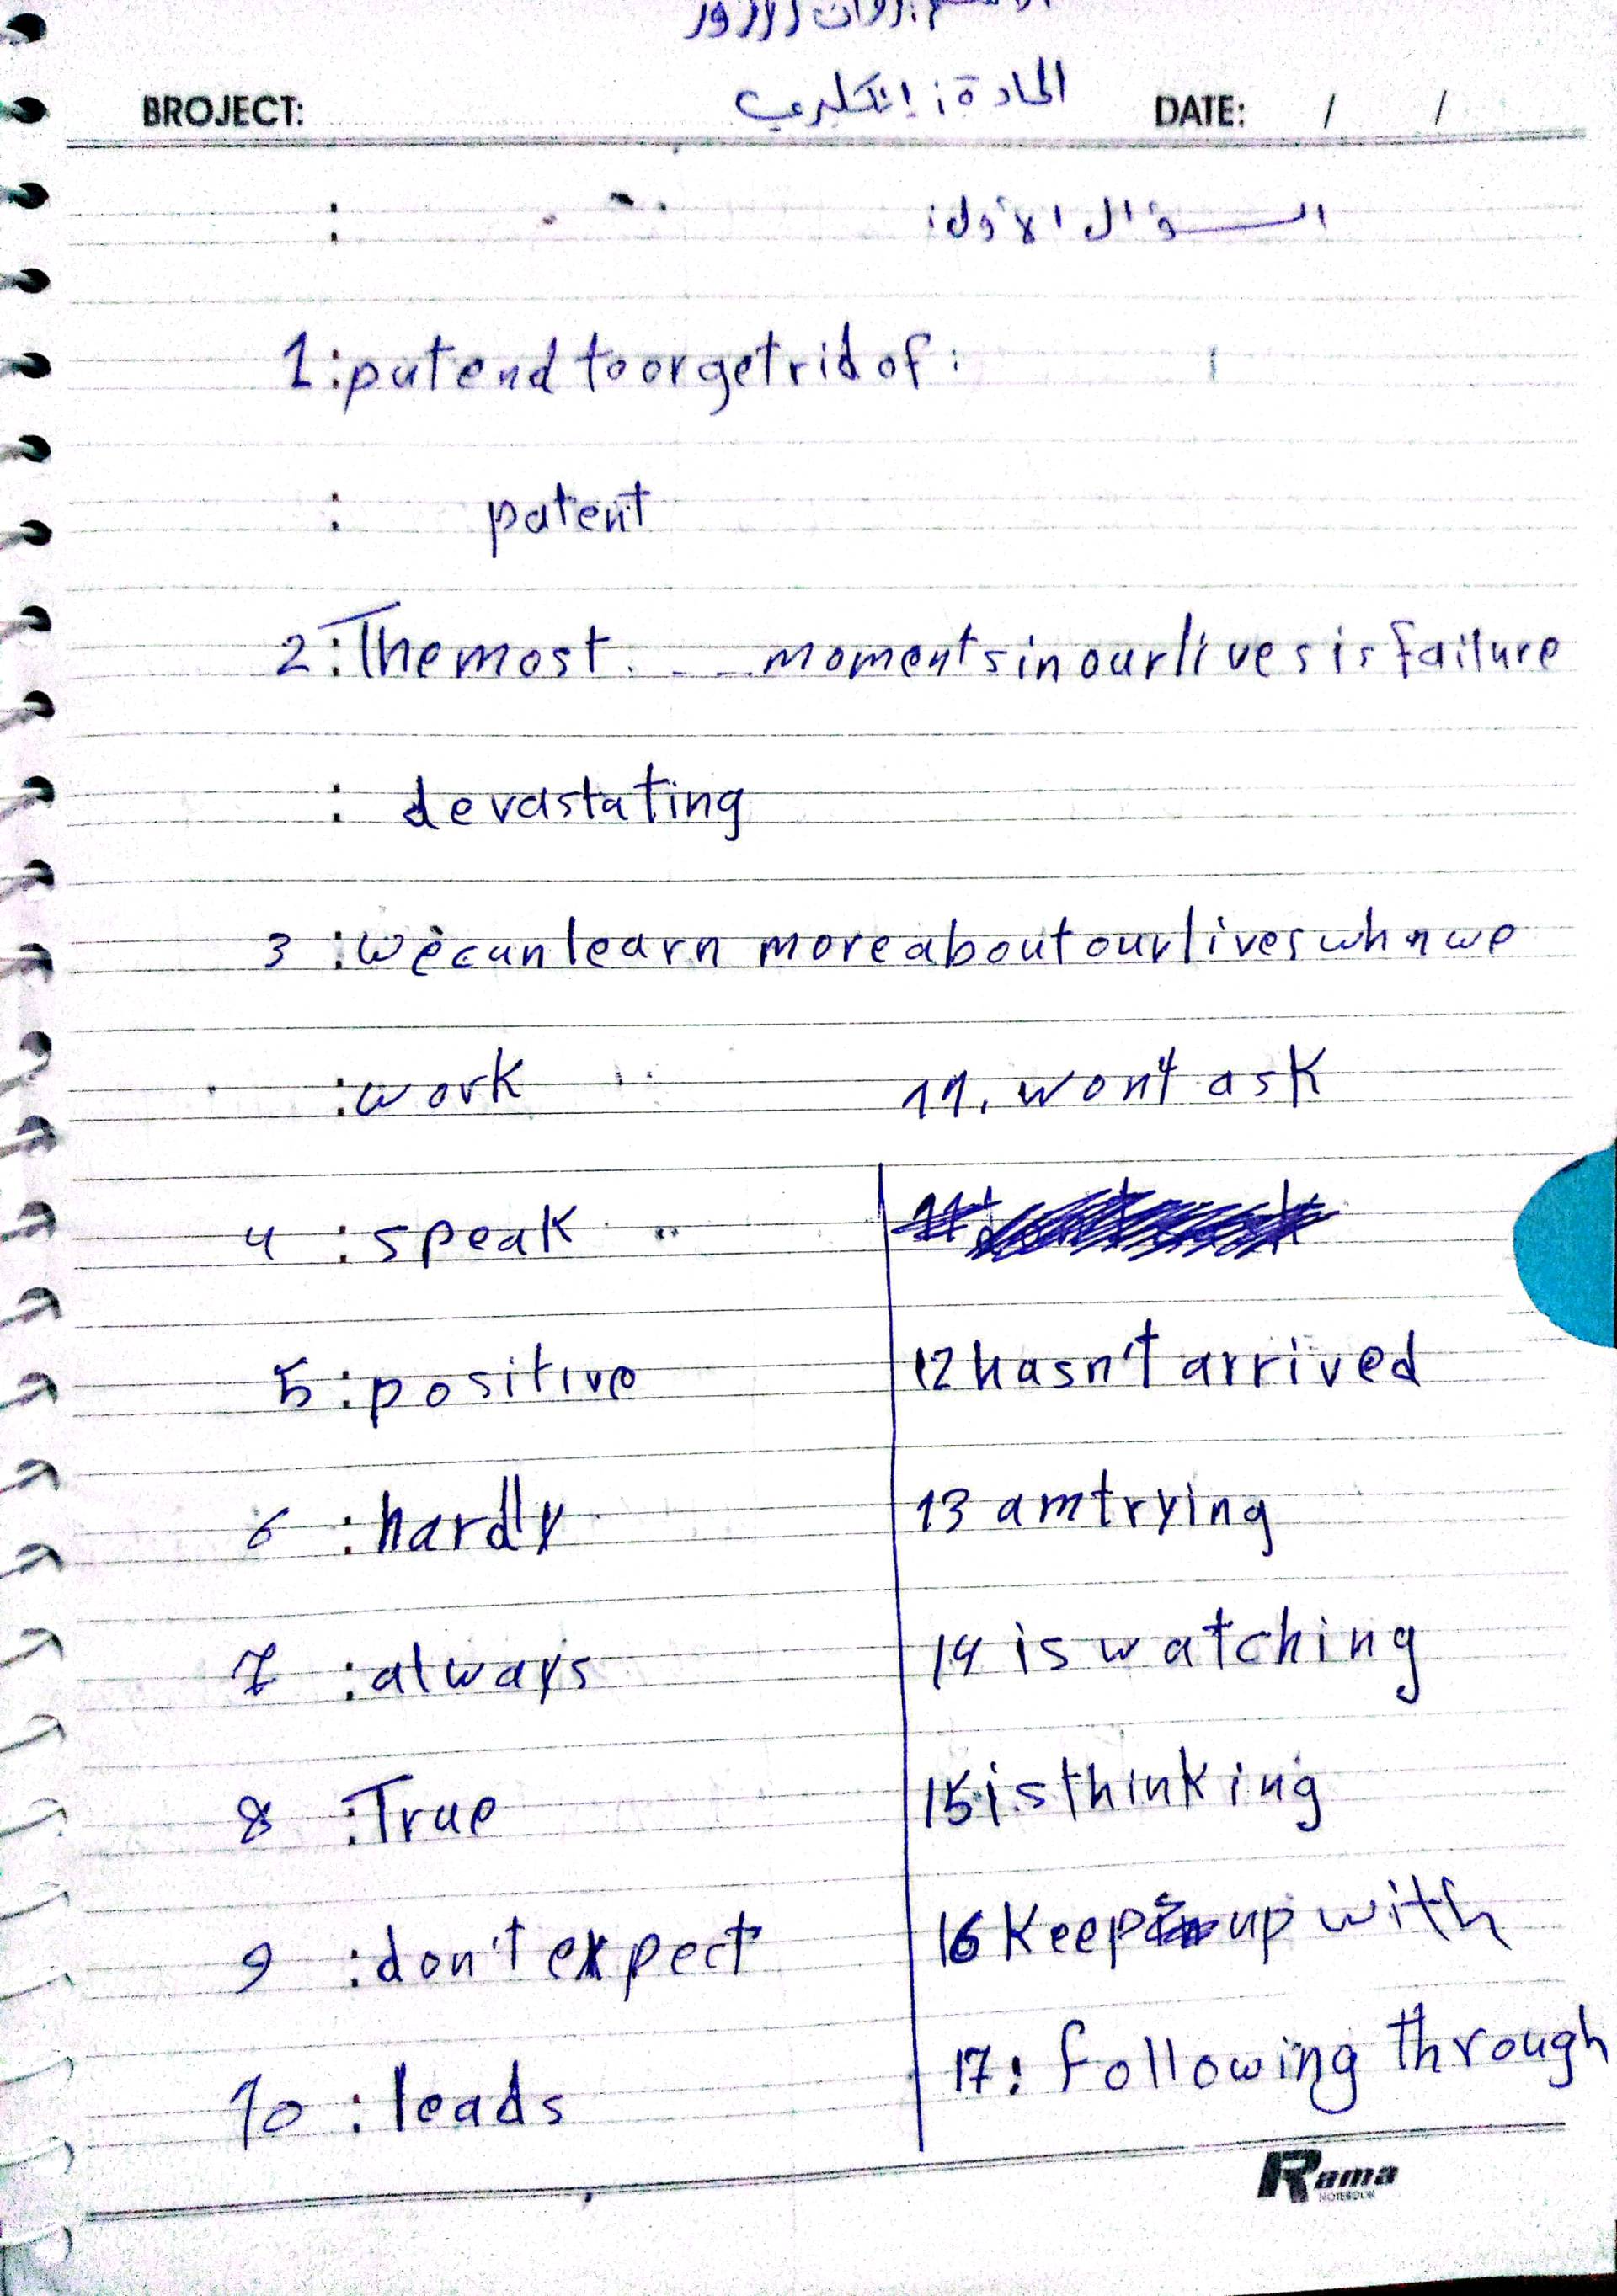 BROJECT:
المادة: إنكليزي
DATE: / /
السؤال الأول:
1: put end to or get rid of:
: patent
2: The most . . . . moments in our lives is failure
: devastating
3 : we can learn more about our lives whn we
: work
4 : speak
5 : positive
6 : hardly
7 : always
8 : True
9 : don't expect
10 : leads
11. won't ask
12 hasn't arrived
13 am trying
14 is watching
15 is thinking
16 Keep up with
17: following through
Rama
NOTEBOOK